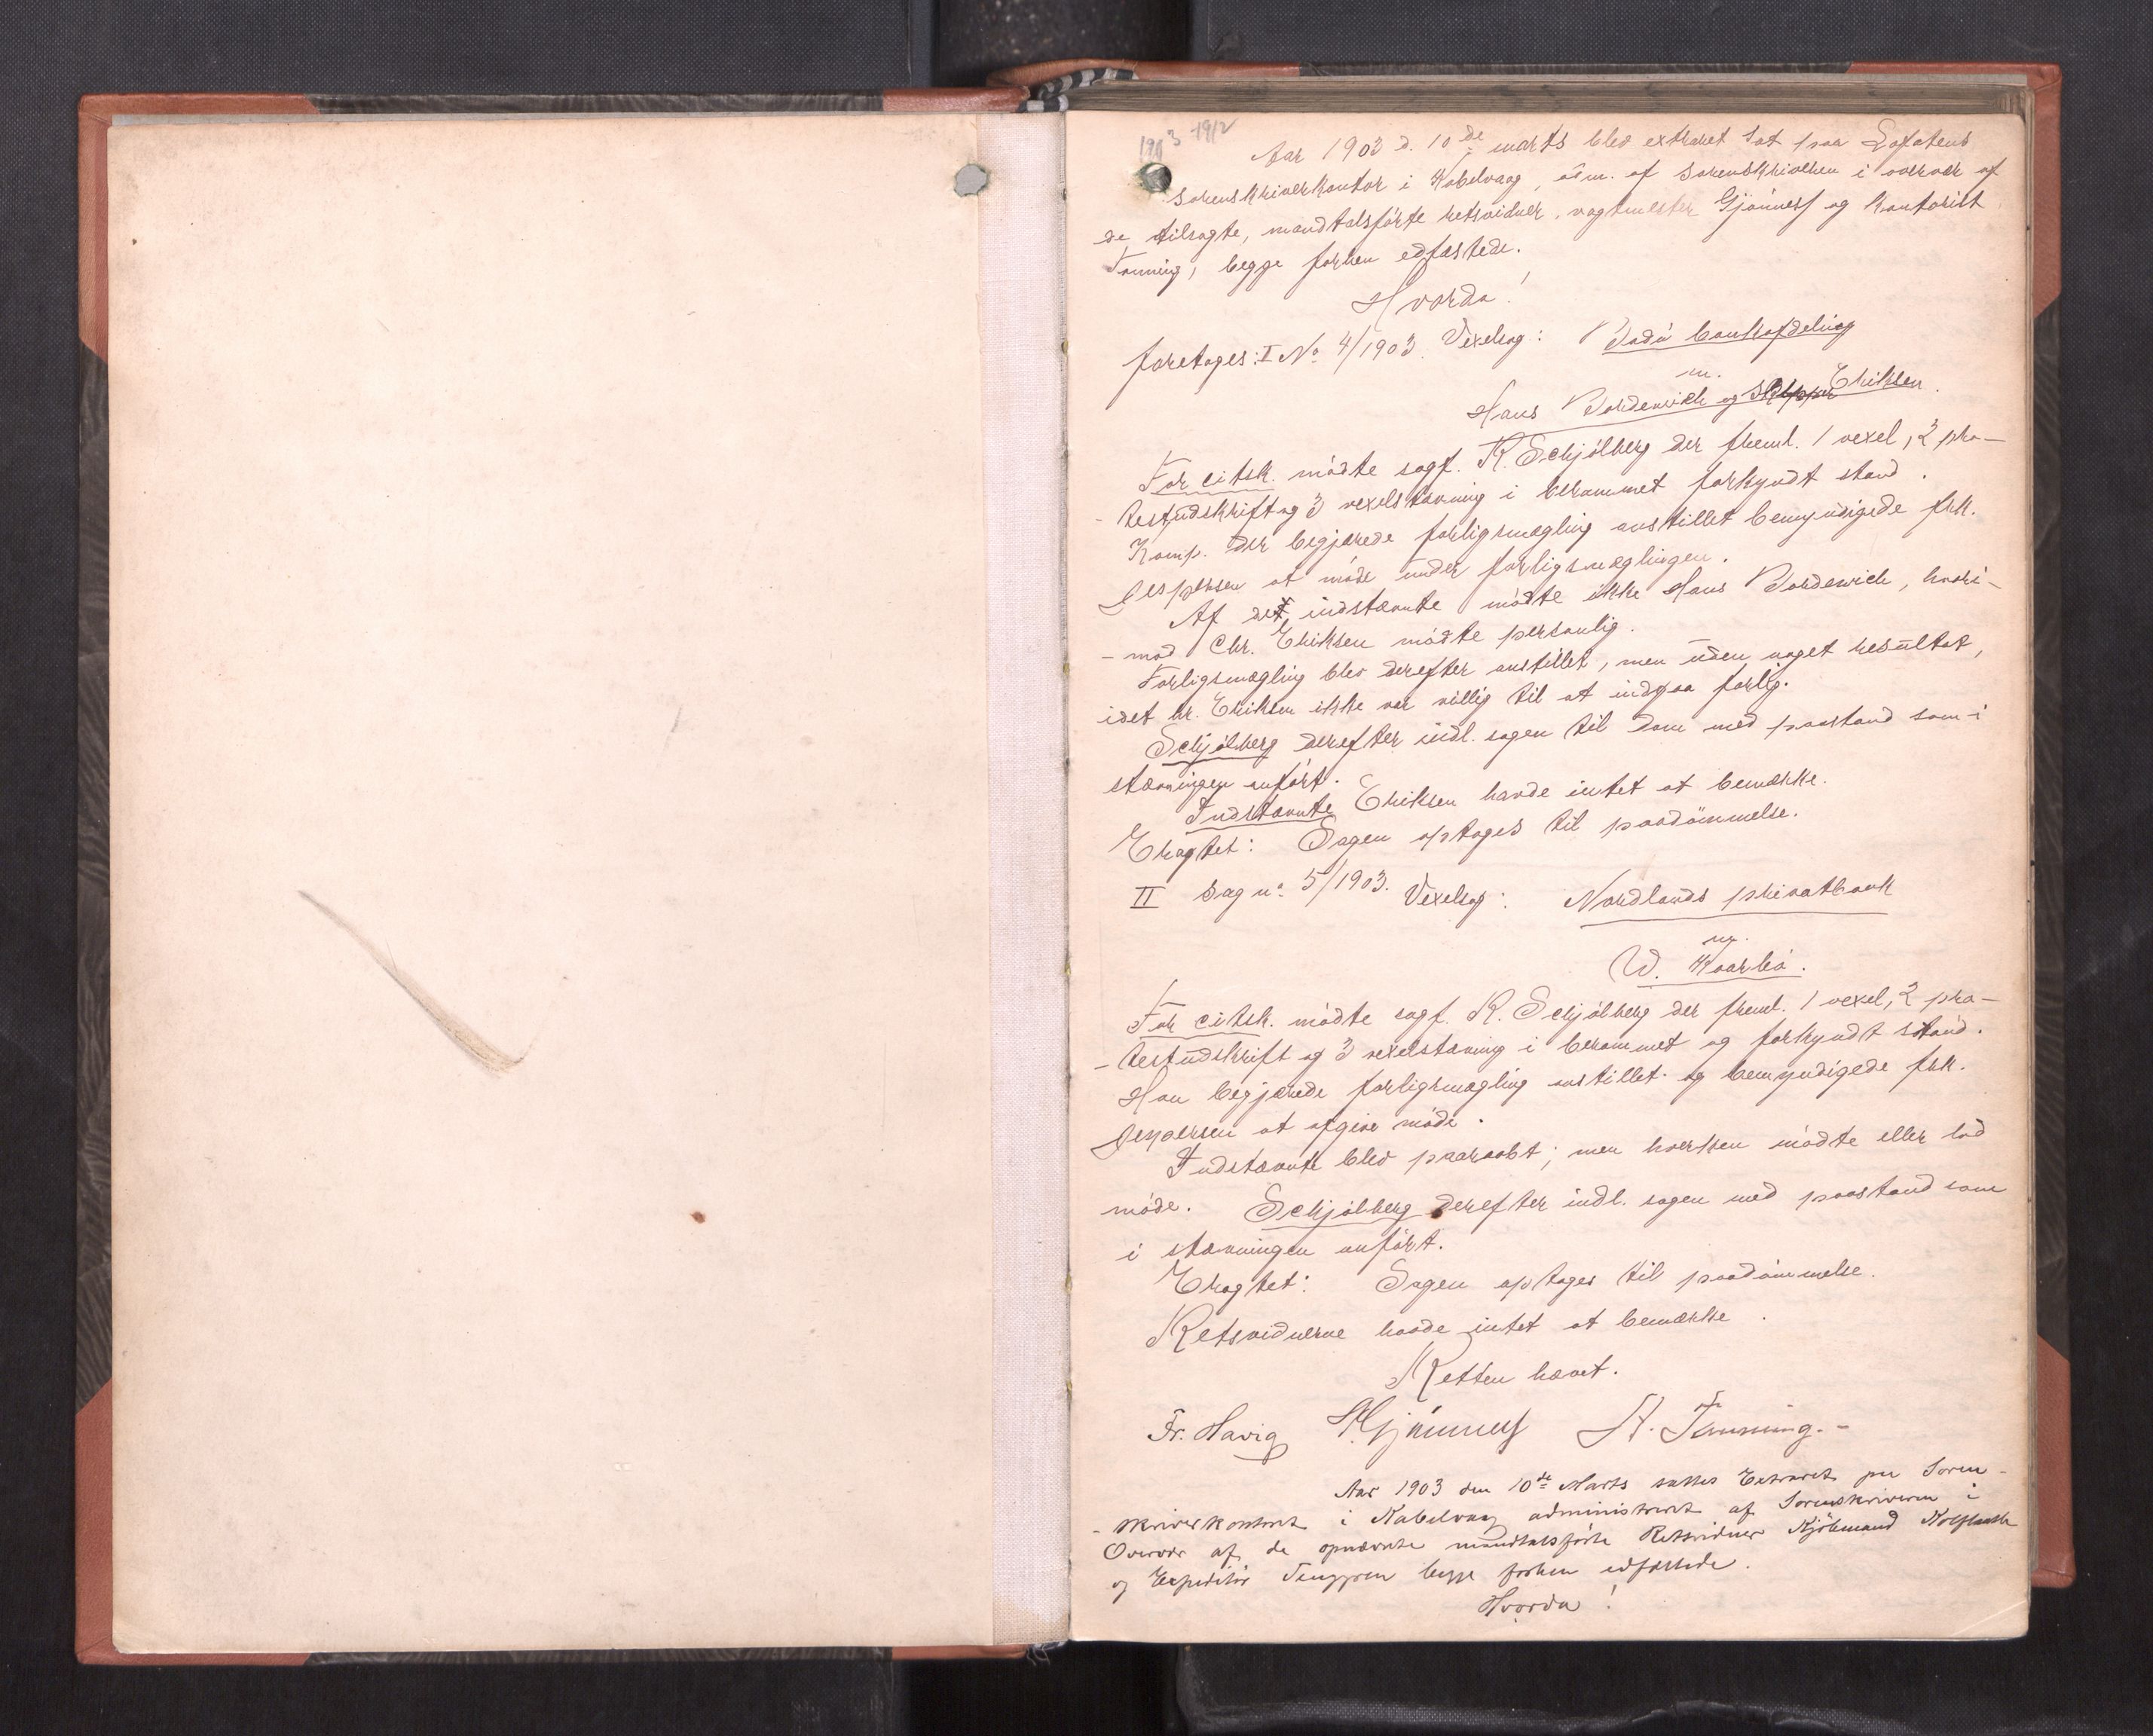 1903 - 1912
Aar 1903 d. 10de marts blev extraret sat paa Lofotens
sorenskriverkontor i Kabelvaag, adm. af sorenskriveren i overvær af
de tilsagte, mandtalsførte retsvidner, vagtmester Gjønnes og kontorist
Tønning, begge forhen edfæstede.
Hvorda!
foretages: I No 4/1903. Vexelsag: Bodø bankafdeling
m.
Hans Bordewich og Eriksen.
For citsk. mødte sagf. K. Schjølberg der freml. 1 vexel, 2 pro-
- testudskrift og 3 vexelstævning i berammet forkyndt stand.
Komp. der begjærede forligsmægling anstillet bemyndigede frk.
Jespersen at møde under forligsmæglingen.
Af de indstævnte mødte ikke Hans Bordewich, hvori-
- mod Chr. Eriksen mødte personlig.
Forligsmægling blev derefter anstillet, men uden noget resultat,
idet hr. Eriksen ikke var villig til at indgaa forlig.
Schjølberg derefter indl. sagen til dom med paastand som i
stævningen anført.
Indstævnte Eriksen havde intet at bemærke.
Eragtet: Sagen optages til paadømmelse.
II Sag no 5/1903. Vexelsag: Nordlands privatbank
m.
W. Kaarbø.
For citsk. mødte sagf. K. Schjølberg der freml. 1 vexel, 2 pro-
- testudskrift og 3 vexelstævning i berammet og forkyndt stand.
Han begjærede forligsmægling anstillet og bemyndigede frk.
Jespersen at afgive møde.
Indstævnte blev paaraabt; men hverken mødte eller lod
møde. Schjølberg derefter indl. sagen med paastand som
i stævningen anført.
Eragtet: Sagen optages til paadømmelse.
Retsvidnerne havde intet at bemærke.
Retten hævet.
Fr. Havig Gjønnes A. Tønning.-
Aar 1903 den 10de Marts sattes Extraret paa Soren-
- skriverkontoret i Kabelvaag administreret af Sorenskriveren i
Overvær af de opnævnte mandtalsførte Retsvidner Kjøbmand
og Expeditør begge forhen edfæstede.
Hvorda!